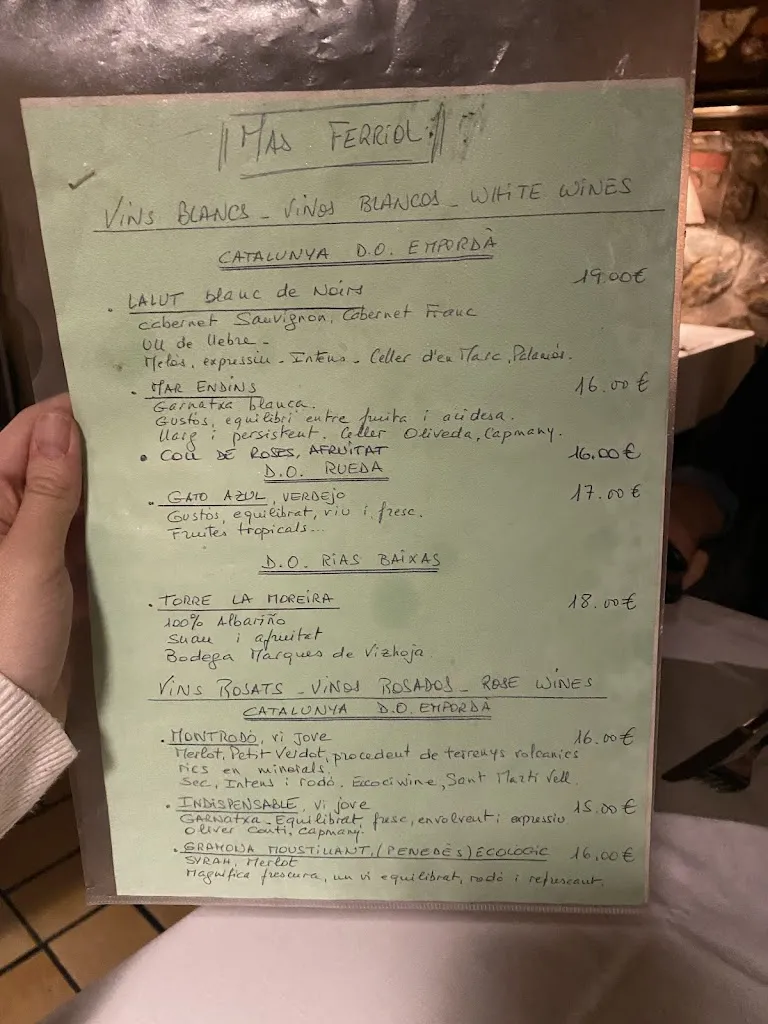 MAS FERRIOL
VINS BLANCS - VINOS BLANCOS - WHITE WINES
CATALUNYA D.O. EMPORDÀ
. LALUT blanc de Noirs 19.00€
cabernet Sauvignon, Cabernet Franc
Ull de llebre -
Melós, expressiu - Intens - Celler d'en Marc, Palamós.
. MAR ENDINS 16.00€
Garnatxa blanca.
Gustós, equilibri entre fruita i acidesa.
Llarg i persistent. Celler Oliveda, Capmany.
• COLL DE ROSES, AFRUITAT 16.00€
D.O. RUEDA
. GATO AZUL, VERDEJO 17.00€
Gustós, equilibrat, viu i fresc.
Fruites tropicals...
D.O. RIAS BAIXAS
. TORRE LA MOREIRA 18.00€
100% Albariño
suau i afruitat
Bodega Marques de Vizhoja.
VINS ROSATS - VINOS ROSADOS - ROSE WINES
CATALUNYA D.O. EMPORDÀ
. MONTRODÓ, vi jove 16.00€
Merlot, Petit Verdot, procedent de terrenys volcanics
rics en minerals.
Sec, Intens i rodó. Ecociwine, Sant Martí Vell.
. INDISPENSABLE, vi jove 15.00€
GARNATXA - Equilibrat, fresc, envolvent i expressiu
Oliver Conti, Capmany.
. GRAMONA MOUSTILLANT, (PENEDÈS) ECOLOGIC 16.00€
SYRAH, Merlot
Magnifica frescura, un vi equilibrat, rodó i refrescant.